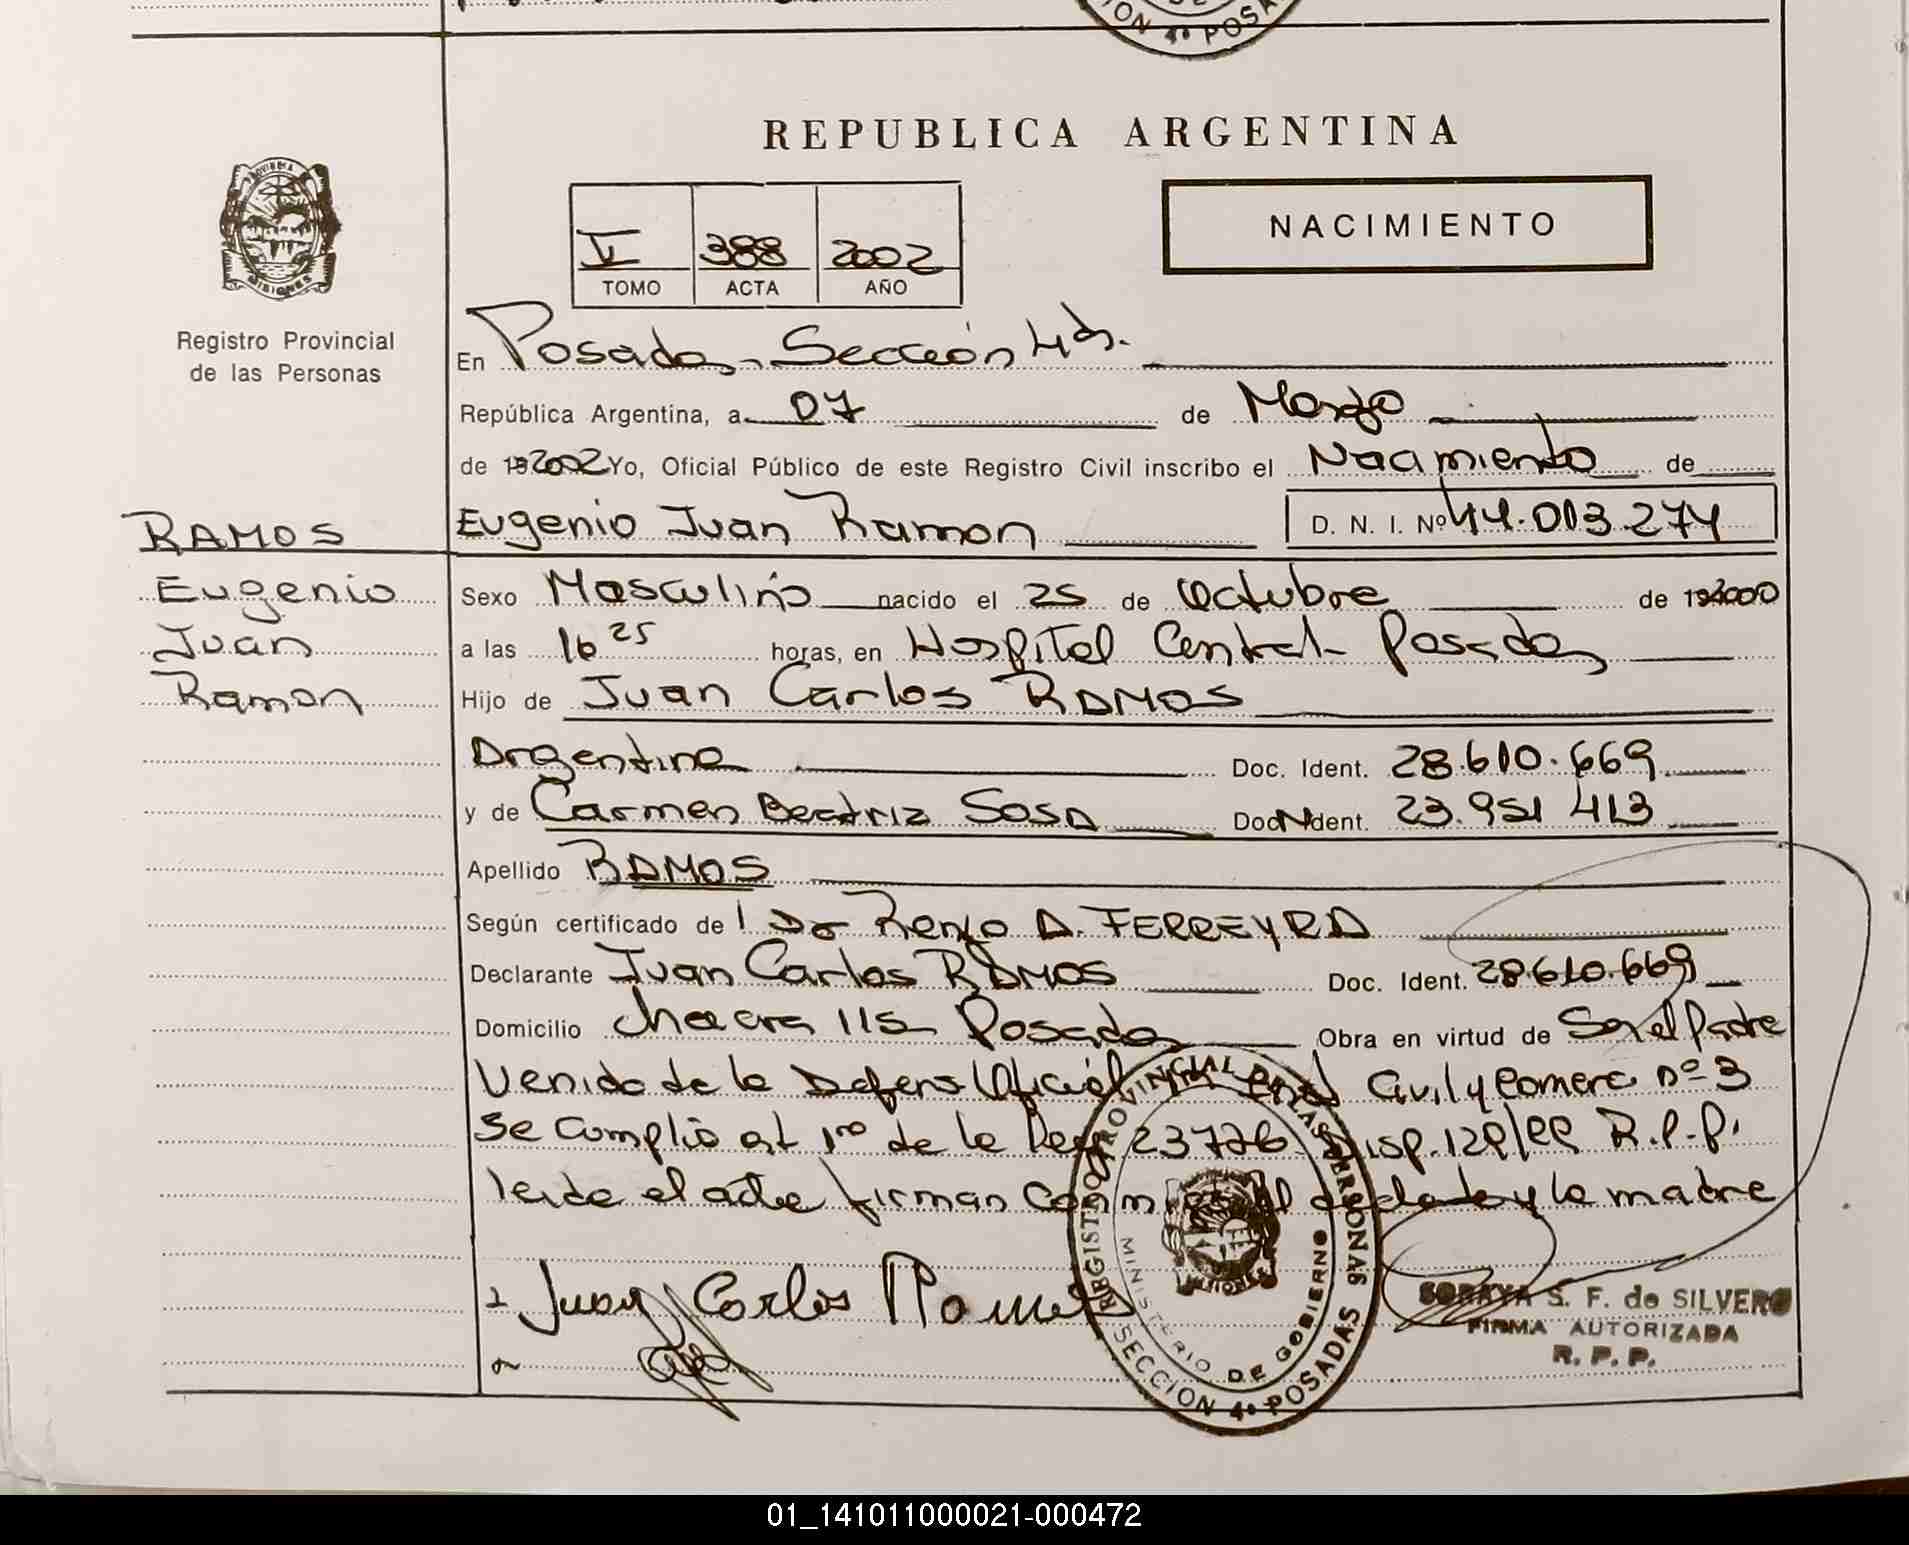 REPUBLICA ARGENTINA
NACIMIENTO
V 388 2002
TOMO ACTA AÑO
Registro Provincial
de las Personas
En Posadas, Sección 4a.
República Argentina, a 07 de Marzo
de 192002 Yo, Oficial Público de este Registro Civil inscribo el Nacimiento de
RAMOS
Eugenio Juan Ramon D. N. I. Nº 44.013.274
Eugenio
Juan
Ramon
Sexo Masculino nacido el 25 de Octubre de 192000
a las 16 25 horas, en Hospital Central Posadas
Hijo de Juan Carlos RAMOS
Argentina Doc. Ident. 28.610.669
y de Carmen Beatriz SOSA Doc. Ident. 23.951 413
Apellido RAMOS
Según certificado de Dr Renzo A. FERREYRA
Declarante Juan Carlos RAMOS Doc. Ident. 28.610.669
Domicilio Chacra 115 Posadas Obra en virtud de Ser el Padre
Venido de la Defens Oficial Civil y Comerc nº 3
Se cumplió art 1ro de la Ley 23776 Disp. 129/99 R.P.P.
leida el acta firman conmigo el declarante y la madre
Juan Carlos Ramos
REGISTRO PROVINCIAL DE LAS PERSONAS
MINISTERIO DE GOBIERNO
SECCION 4º POSADAS
SORAYA S. F. de SILVERO
FIRMA AUTORIZADA
R. P. P.
01_141011000021-000472